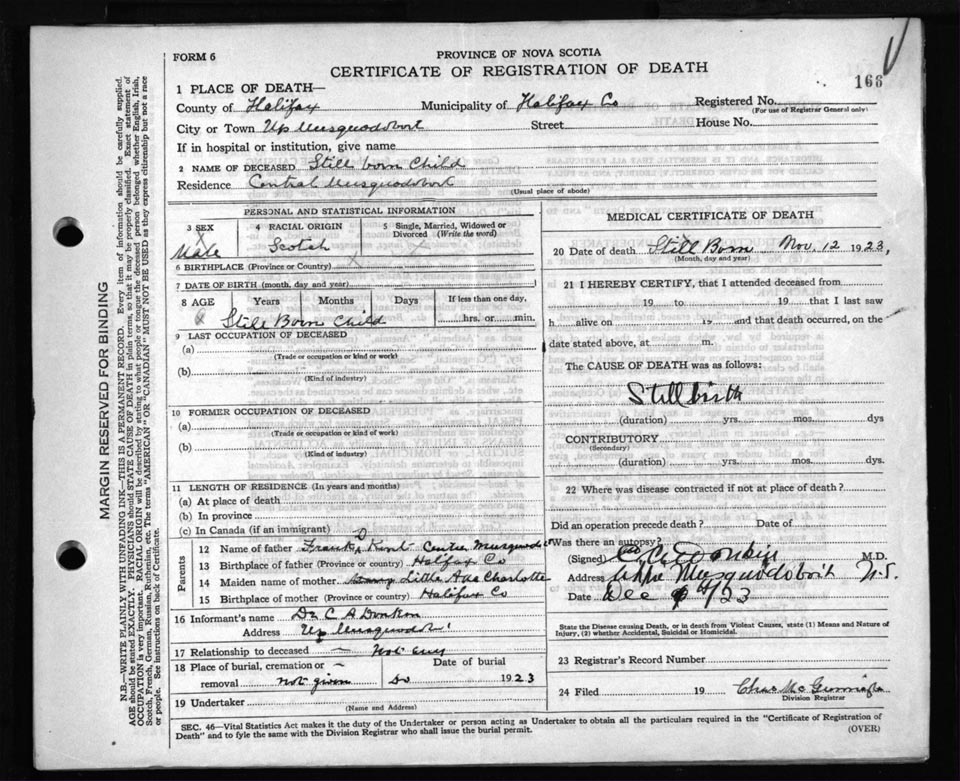 FORM 6
PROVINCE OF NOVA SCOTIA
CERTIFICATE OF REGISTRATION OF DEATH
168
1 PLACE OF DEATH—
County of Halifax Municipality of Halifax Co Registered No.
(For use of Registrar General only)
City or Town Up Musquodobort Street House No.
If in hospital or institution, give name
2 NAME OF DECEASED Still born Child
Residence Central Musquodobort
(Usual place of abode)
PERSONAL AND STATISTICAL INFORMATION
3 SEX
Male
4 RACIAL ORIGIN
Scotch
5 Single, Married, Widowed or Divorced (Write the word)
6 BIRTHPLACE (Province or Country)
7 DATE OF BIRTH (month, day and year)
8 AGE Years Months Days If less than one day,
Still Born Child hrs. or min.
9 LAST OCCUPATION OF DECEASED
(a)
(Trade or occupation or kind of work)
(b)
(Kind of industry)
10 FORMER OCCUPATION OF DECEASED
(a)
(Trade or occupation or kind of work)
(b)
(Kind of industry)
11 LENGTH OF RESIDENCE (In years and months)
(a) At place of death
(b) In province
(c) In Canada (if an immigrant)
Parents
12 Name of father Frank Kent Centre
13 Birthplace of father (Province or country) Halifax Co
14 Maiden name of mother Little Ada Charlotte
15 Birthplace of mother (Province or country) Halifax Co
16 Informant's name Dr C A Donkin
Address Up Musquodob'
17 Relationship to deceased — Not any
18 Place of burial, cremation or — Date of burial
removal not given Do 1923
19 Undertaker
(Name and Address)
MEDICAL CERTIFICATE OF DEATH
20 Date of death Still Born Nov. 12 1923,
(Month, day and year)
21 I HEREBY CERTIFY, that I attended deceased from
19 to 19 that I last saw
h alive on 19 and that death occurred, on the
date stated above, at m.
The CAUSE OF DEATH was as follows:
Stillbirth
(duration) yrs. mos. dys
CONTRIBUTORY
(Secondary)
(duration) yrs. mos. dys.
22 Where was disease contracted if not at place of death?
Did an operation precede death? Date of
Was there an autopsy?
(Signed) Donkin M.D.
Address Musquodoboit N.S.
Date Dec /23
State the Disease causing Death, or in death from Violent Causes, state (1) Means and Nature of
Injury, (2) whether Accidental, Suicidal or Homicidal.
23 Registrar's Record Number
24 Filed 19 Chas
Division Registrar
SEC. 46—Vital Statistics Act makes it the duty of the Undertaker or person acting as Undertaker to obtain all the particulars required in the "Certificate of Registration of
Death" and to fyle the same with the Division Registrar who shall issue the burial permit.
(OVER)
MARGIN RESERVED FOR BINDING
N.B.—WRITE PLAINLY WITH UNFADING INK—THIS IS A PERMANENT RECORD. Every item of information should be carefully supplied.
AGE should be stated EXACTLY. PHYSICIANS should STATE CAUSE OF DEATH in plain terms, so that it may be properly classified. Exact statement of
OCCUPATION is very important. RACIAL ORIGIN will be described by stating to what people or tongue the deceased person belonged whether English, Irish,
Scotch, French, German, Russian, Ruthenian, etc. The terms "AMERICAN" OR "CANADIAN" MUST NOT BE USED as they express citizenship but not a race
or people. See instructions on back of Certificate.